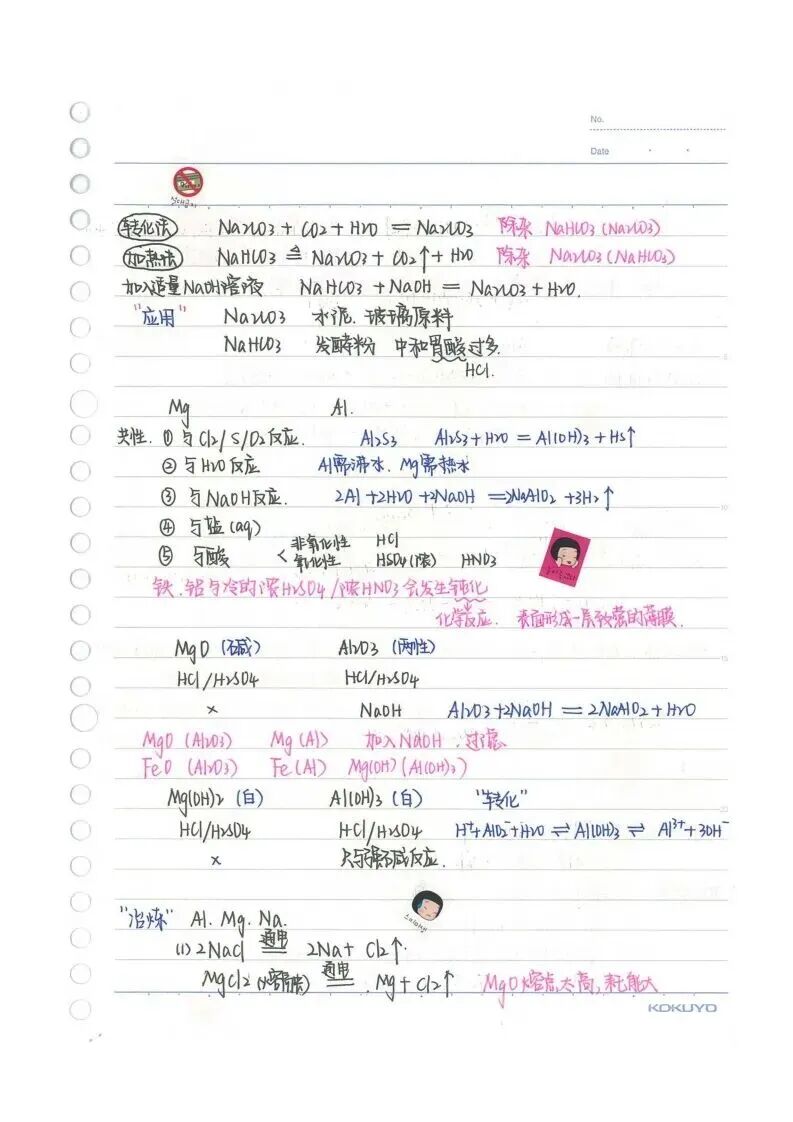 No.
Date
转化法 Na2CO3 + CO2 + H2O = Na2CO3 除杂 NaHCO3 (Na2CO3)
加热法 NaHCO3 ≜ Na2CO3 + CO2↑ + H2O 除杂 Na2CO3 (NaHCO3)
加入适量NaOH溶液 NaHCO3 + NaOH = Na2CO3 + H2O.
"应用" Na2CO3 水泥. 玻璃原料
NaHCO3 发酵粉 中和胃酸过多.
HCl.
Mg Al.
共性. ① 与Cl2/S/O2反应. Al2S3 Al2S3 + H2O = Al(OH)3 + HS↑
② 与H2O反应 Al需沸水. Mg需热水
③ 与NaOH反应. 2Al + 2H2O + 2NaOH = 2NaAlO2 + 3H2↑
④ 与盐(aq)
⑤ 与酸 < 非氧化性 HCl
氧化性 HSO4(浓) HNO3
铁. 铝与冷的浓H2SO4/浓HNO3会发生钝化
化学反应. 表面形成一层致密的薄膜.
MgO (碱) Al2O3 (两性)
HCl/H2SO4 HCl/H2SO4
× NaOH Al2O3 + 2NaOH = 2NaAlO2 + H2O
MgO (Al2O3) Mg (Al) 加入NaOH. 过滤
FeO (Al2O3) Fe (Al) Mg(OH) (Al(OH)3)
Mg(OH)2 (白) Al(OH)3 (白) "转化"
HCl/H2SO4 HCl/H2SO4 H⁺ + AlO2⁻ + H2O ⇌ Al(OH)3 ⇌ Al³⁺ + 3OH⁻
× 只与强碱反应.
"冶炼" Al. Mg. Na.
(1) 2NaCl 通电 = 2Na + Cl2↑
MgCl2 (熔融) 通电 = Mg + Cl2↑ MgO熔点太高, 耗能大
KOKUYO